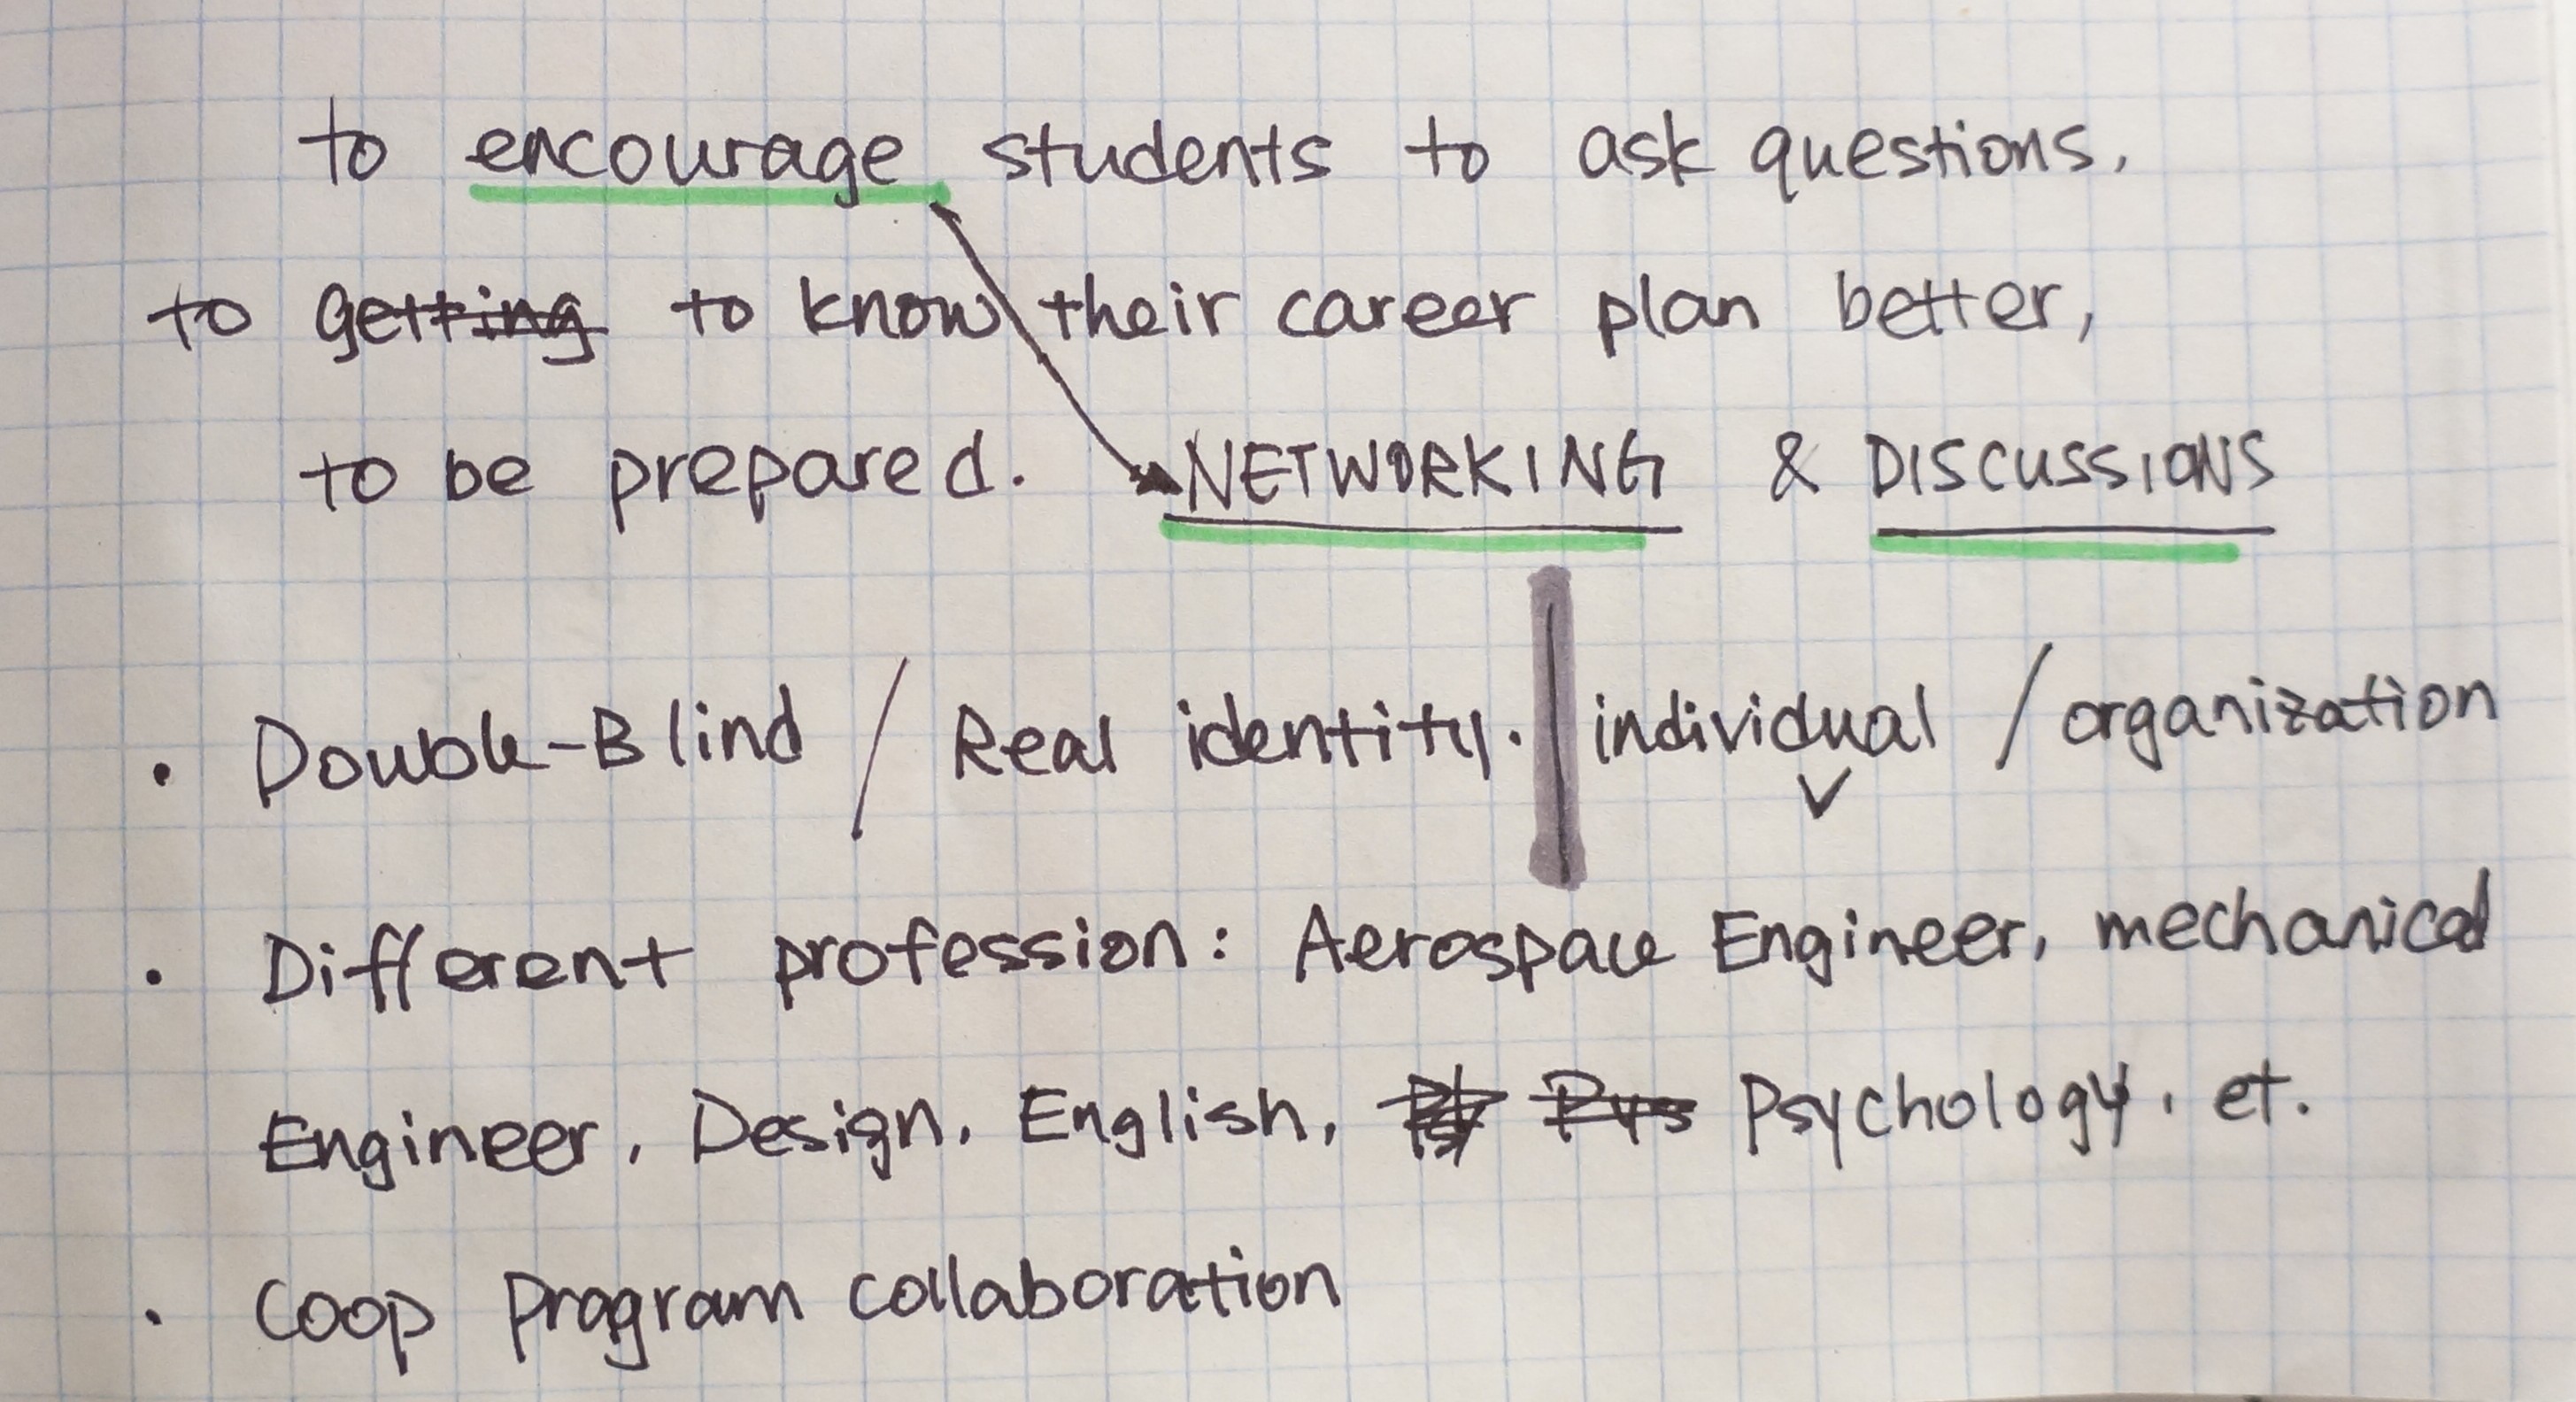 to encourage students to ask questions.
to getting to know their career plan better,
to be prepared. NETWORKING & DISCUSSIONS
• Double-Blind / Real identity. | individual / organization
• Different profession: Aerospace Engineer, mechanical
Engineer, Design, English, Psychology, et.
• Coop Program collaboration